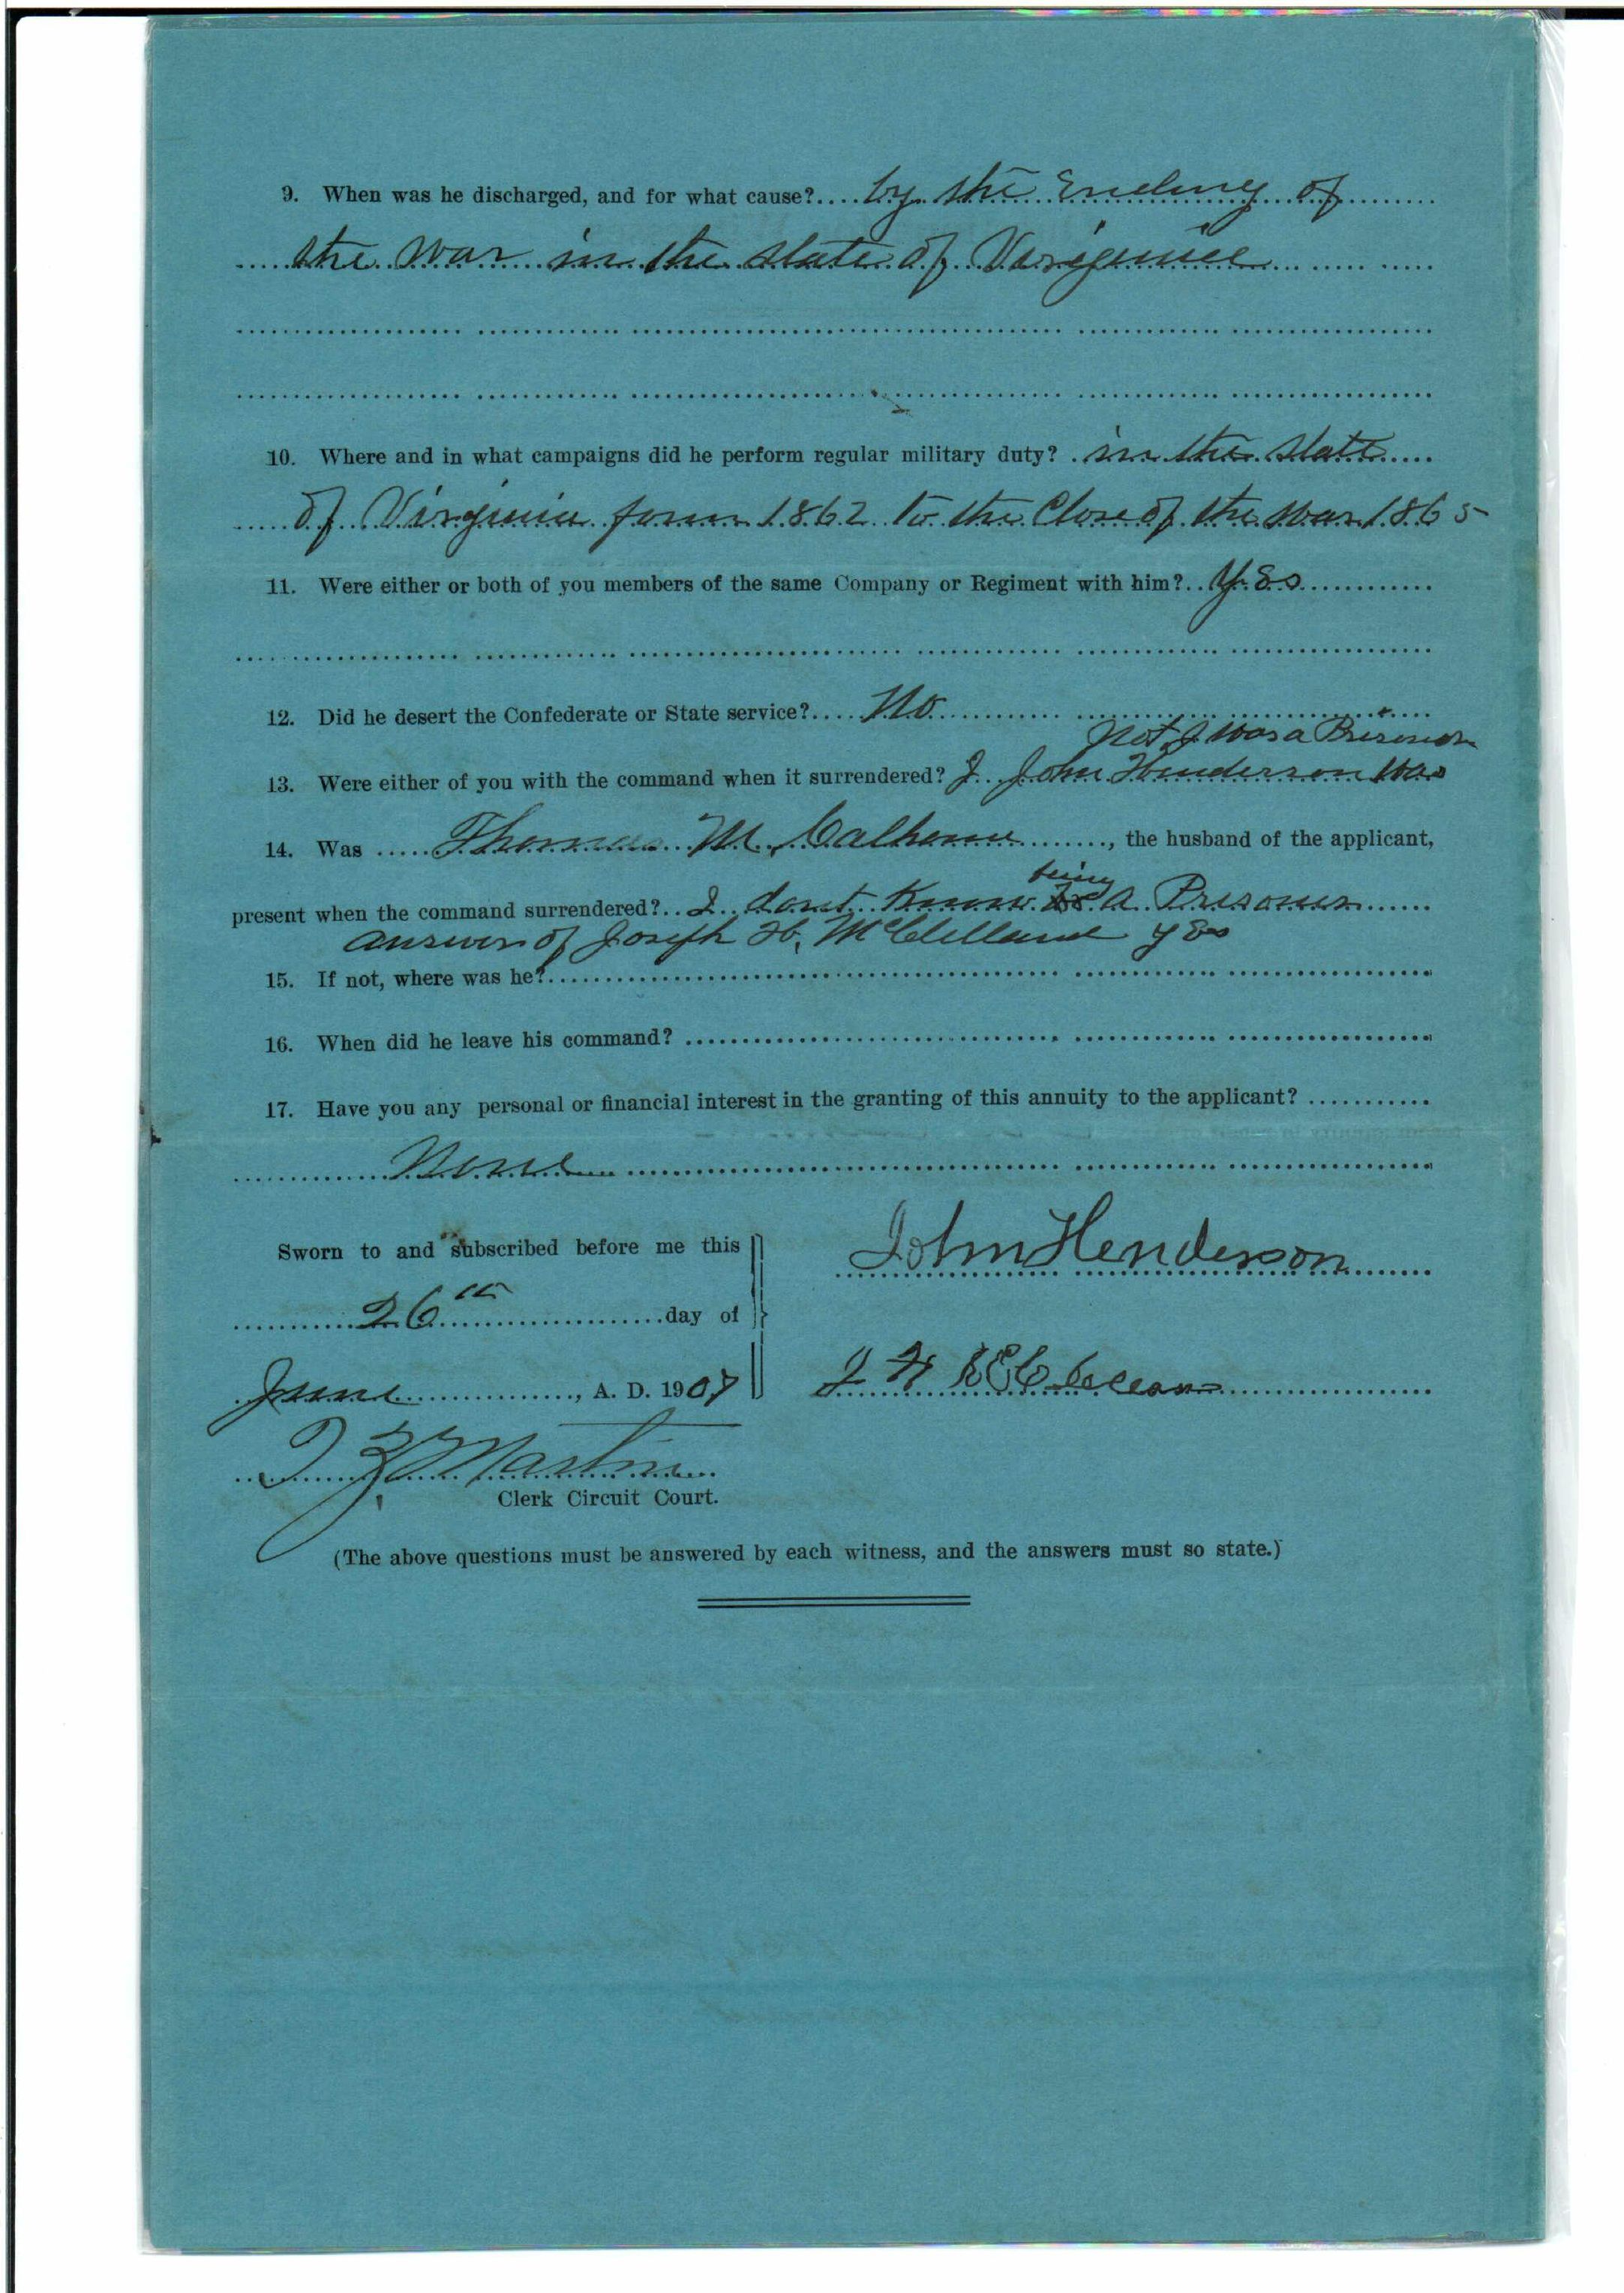 9. When was he discharged, and for what cause? by the Ending of
the war in the state of Virginia
10. Where and in what campaigns did he perform regular military duty? in the state
of Virginia from 1862 to the Close of the war 1865
11. Were either or both of you members of the same Company or Regiment with him? yEs
12. Did he desert the Confederate or State service? No
not I was a Prisoner
13. Were either of you with the command when it surrendered? I John Henderson was
14. Was Thomas M. Calhoun, the husband of the applicant,
being
present when the command surrendered? I dont Know a Prisoner
answer of Joseph H. McClelland yEs
15. If not, where was he?
16. When did he leave his command?
17. Have you any personal or financial interest in the granting of this annuity to the applicant?
None
Sworn to and subscribed before me this
John Henderson
26th day of
June, A. D. 1907
J H
Martin
Clerk Circuit Court.
(The above questions must be answered by each witness, and the answers must so state.)